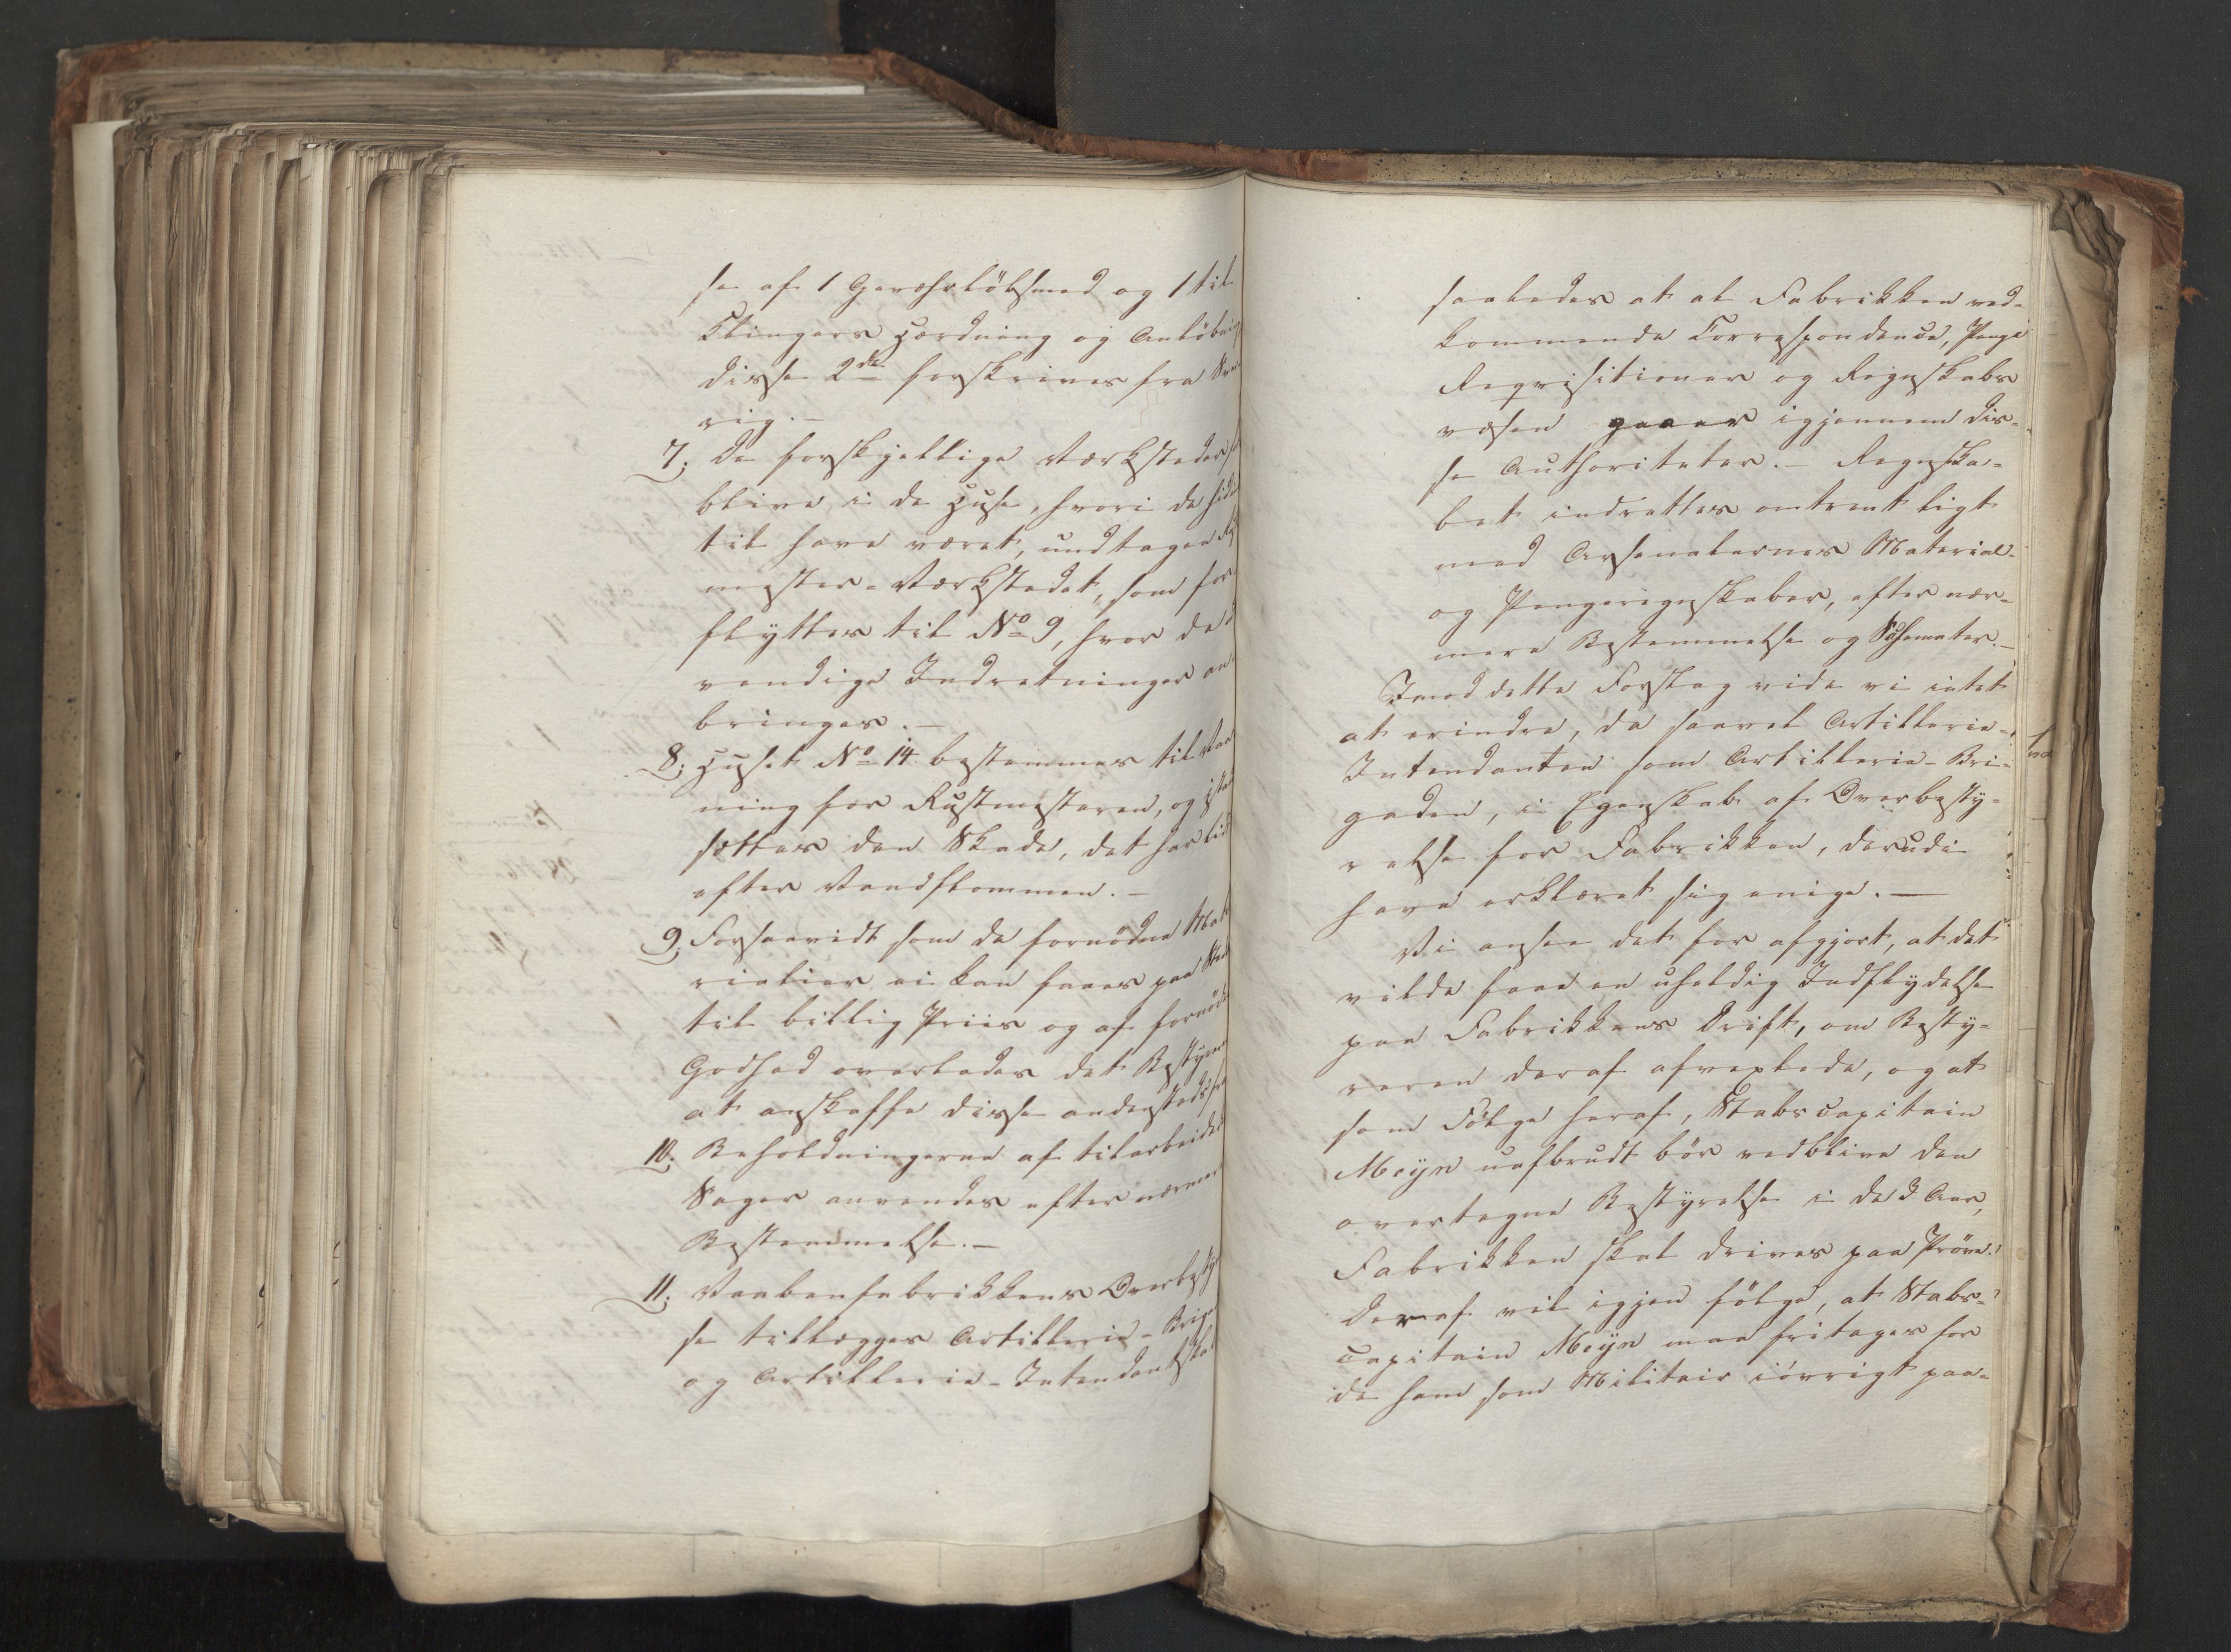 se af 1 Geværløbsmed og 1 til
Klingers Hærdning og Anløbning
disse 2de forskrives fra Sve
rig. –
7. De forskjellige Værksteder for
blive i de Huse, hvori de hid
til have været, undtagen Rüst
mester-Værkstedet, som for
flyttes til No 9, hvor de
vendige Indretninger an
bringes. –
8. Huset No 14 bestemmes til Vaa
ning for Rustmesteren, og istand
sættes den Skade, det har lidt
efter Vandflommen. –
9. Forsaavidt som de fornødne Mate
rialier ei kan faaes paa Stedet
til billig Priis og af fornøden
Godhed overlades det Bestyreren
at anskaffe disse andenstedsfra
10. Beholdningerne af tilarbeidede
Sager anvendes efter nærmere
Bestemmelse. –
11. Vaabenfabrikkens Overbestyrel
se tillægges Artillerie-Briga
og Artillerie-Intendantskabet
saaledes at al Fabrikken ved-
kommende Correspondence, Penge
Reqvisitioner og Regnskabs
væsen gaaer igjennem dis-
se Authoriteter. – Regnska-
bet indrettes omtrent ligt
med Arsenalernes Material-
og Pengeregnskaber, efter nær-
mere Bestemmelse og Schemater. –
Imod dette Forslag vide vi intet
at erindre, da saavel Artillerie-
Intendanten som Artillerie-Bri-
gaden, i Egenskab af Overbesty-
relse for Fabrikken, derudi
have erklæret sig enige. –
Vi ansee det for afgjort, at det
vilde faae en uheldig Indflydelse
paa Fabrikkens Drift, om Besty-
reren deraf afvexlede, og at
som Følge heraf, Stabscapitain
Meÿn uafbrudt bør vedblive den
overtagne Bestyrelse i de 3 Aar,
Fabrikken skal drives paa Prøve.
Deraf vil igjen følge, at Stabs-
capitain Meÿn maa fritages for
de ham som Militair iøvrigt paa-